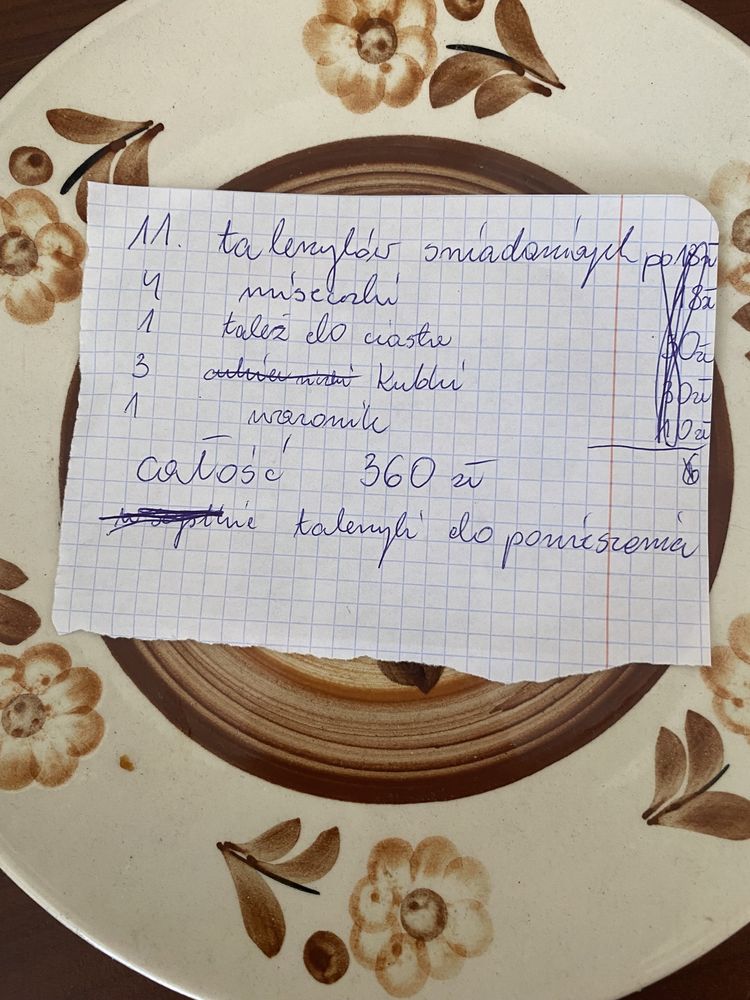 11. talerzyków sniadaniowych po 18zł
4 miseczki 18zł
1 taleź do ciasta 30zł
3 Kubki 30zł
1 wazonik 10zł
całość 360 zł
talerzyki do powieszenia